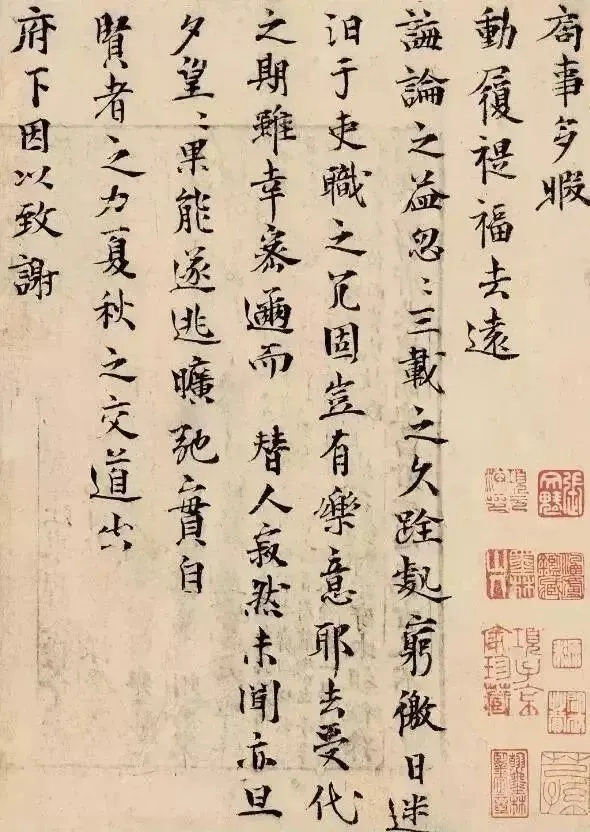 局事多暇
動履禔福去遠
誨論之益忽〻三載之久跧處窮徼日迷
汩于吏職之冗固豈有樂意耶去受代
之期雖幸密邇而 替人寂然未聞亦旦
夕望〻果能遂逃曠弛實自
賢者之力夏秋之交道出
府下因以致謝
項子京
家珍藏